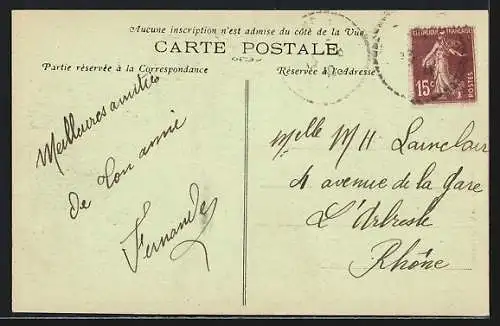 Aucune inscription n'est admise du côté de la Vue
CARTE POSTALE
Partie réservée à la Correspondance
Réservée à l'Adresse
RÉPUBLIQUE FRANÇAISE
15c
POSTES
Meilleures amitiés
de ton amie
Fernande
Mlle M H Lainclair
4 avenue de la Gare
L'Arbresle
Rhône